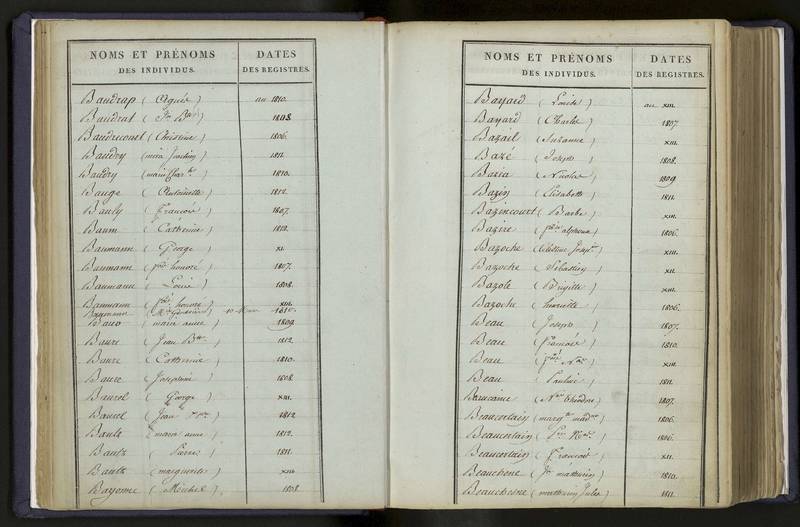 NOMS ET PRÉNOMS DES INDIVIDUS. DATES DES REGISTRES.
Baudrap (Agnés) an 1810.
Baudrat (Jn Bte) 1808.
Baudricourt (Christine) 1806.
Baudry (marie Joachim) 1811.
Baudry (marie Charte) 1810.
Bauge (Antoinette) 1812.
Bauly (François) 1807.
Baum (Catherine) 1810.
Baumann (George) XI.
Baumann (honoré) 1807.
Baumann (Louis) 1808.
Baumann (honoré) XIII.
Baumann 1810.
(marie anne) 1809
Baure (Jean Bte) 1812.
Baure (Catherine) 1810.
Baure (Joséphine) 1808
Baurel (George) XIII.
Baurel (Jean) 1812
Bault (marie anne) 1812.
Bautz (Pierre) 1811.
Bautz (marguerite) XIII
Bayonne (Michel) 1808
NOMS ET PRÉNOMS DES INDIVIDUS. DATES DES REGISTRES.
Bayard (Louise) an XIII.
Bayard (Charles) 1807.
Bazail (Suzanne) XIII.
Baze (Joseph) 1808.
Bazia (Nicolas) 1809
Bazin (Elisabeth) 1811.
Bazincourt (Barbe) XIII.
Bazire (alphonse) 1806.
Bazoche (Josph) XIII.
Bazoche (Sébastien) XII.
Bazole (Brigitte) XIII.
Bazoche (henriette) 1806.
Beau (Joseph) 1807.
Beau (François) 1810.
Beau XIII.
Beau (Pauline) 1811.
(Théodore) 1807.
Beaucertain (margte) 1806.
Beaucertain 1806.
Beaucertain (François) XII.
Beauchene (Jn mathurin) 1810.
Beauchesne (mathurin Jules) 1811.